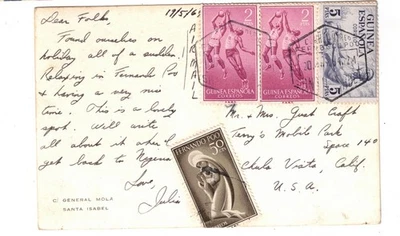 Dear Folks,
Found ourselves on
holiday all of a sudden!
Relaxing in Fernando Poo
& having a very nice
time. This is a lovely
spot. Will write
all about it when I
get back to Nigeria
Love,
Julia
C/ GENERAL MOLA
SANTA ISABEL
AIRMAIL
2
PTAS
GUINEA ESPAÑOLA
CORREOS
2
PTAS
GUINEA ESPAÑOLA
CORREOS
GUINEA
ESPAÑOLA
5
5
FERNANDO POO
50
CTS
Mr. & Mrs. Grant Craft
Terry's Mobile Park
Space 140
Chula Vista, Calif.
U.S.A.